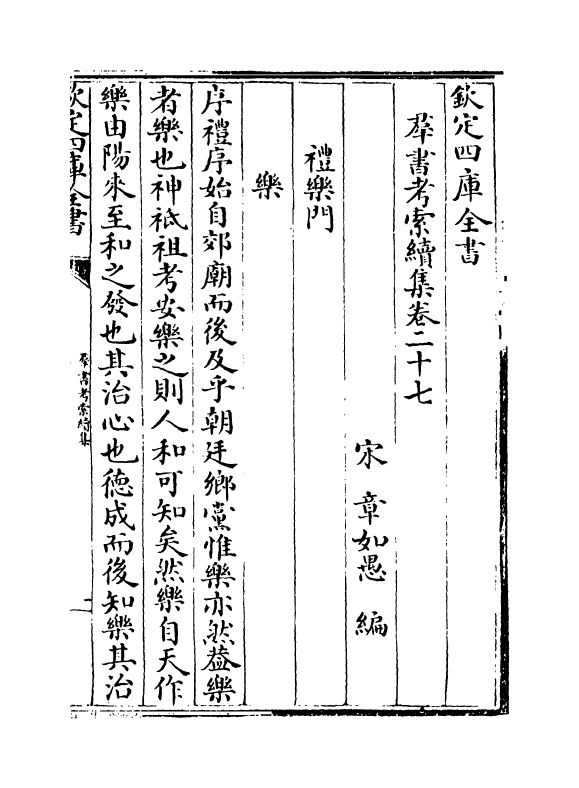 欽定四庫全書
羣書考索續集卷二十七
宋 章如愚 編
禮樂門
樂
序禮序始自郊廟而後及乎朝廷鄉黨惟樂亦然葢樂
者樂也神祇祖考安樂之則人和可知矣然樂自天作
樂由陽來至和之發也其治心也德成而後知樂其治
欽定四庫全書
羣書考索續集
一